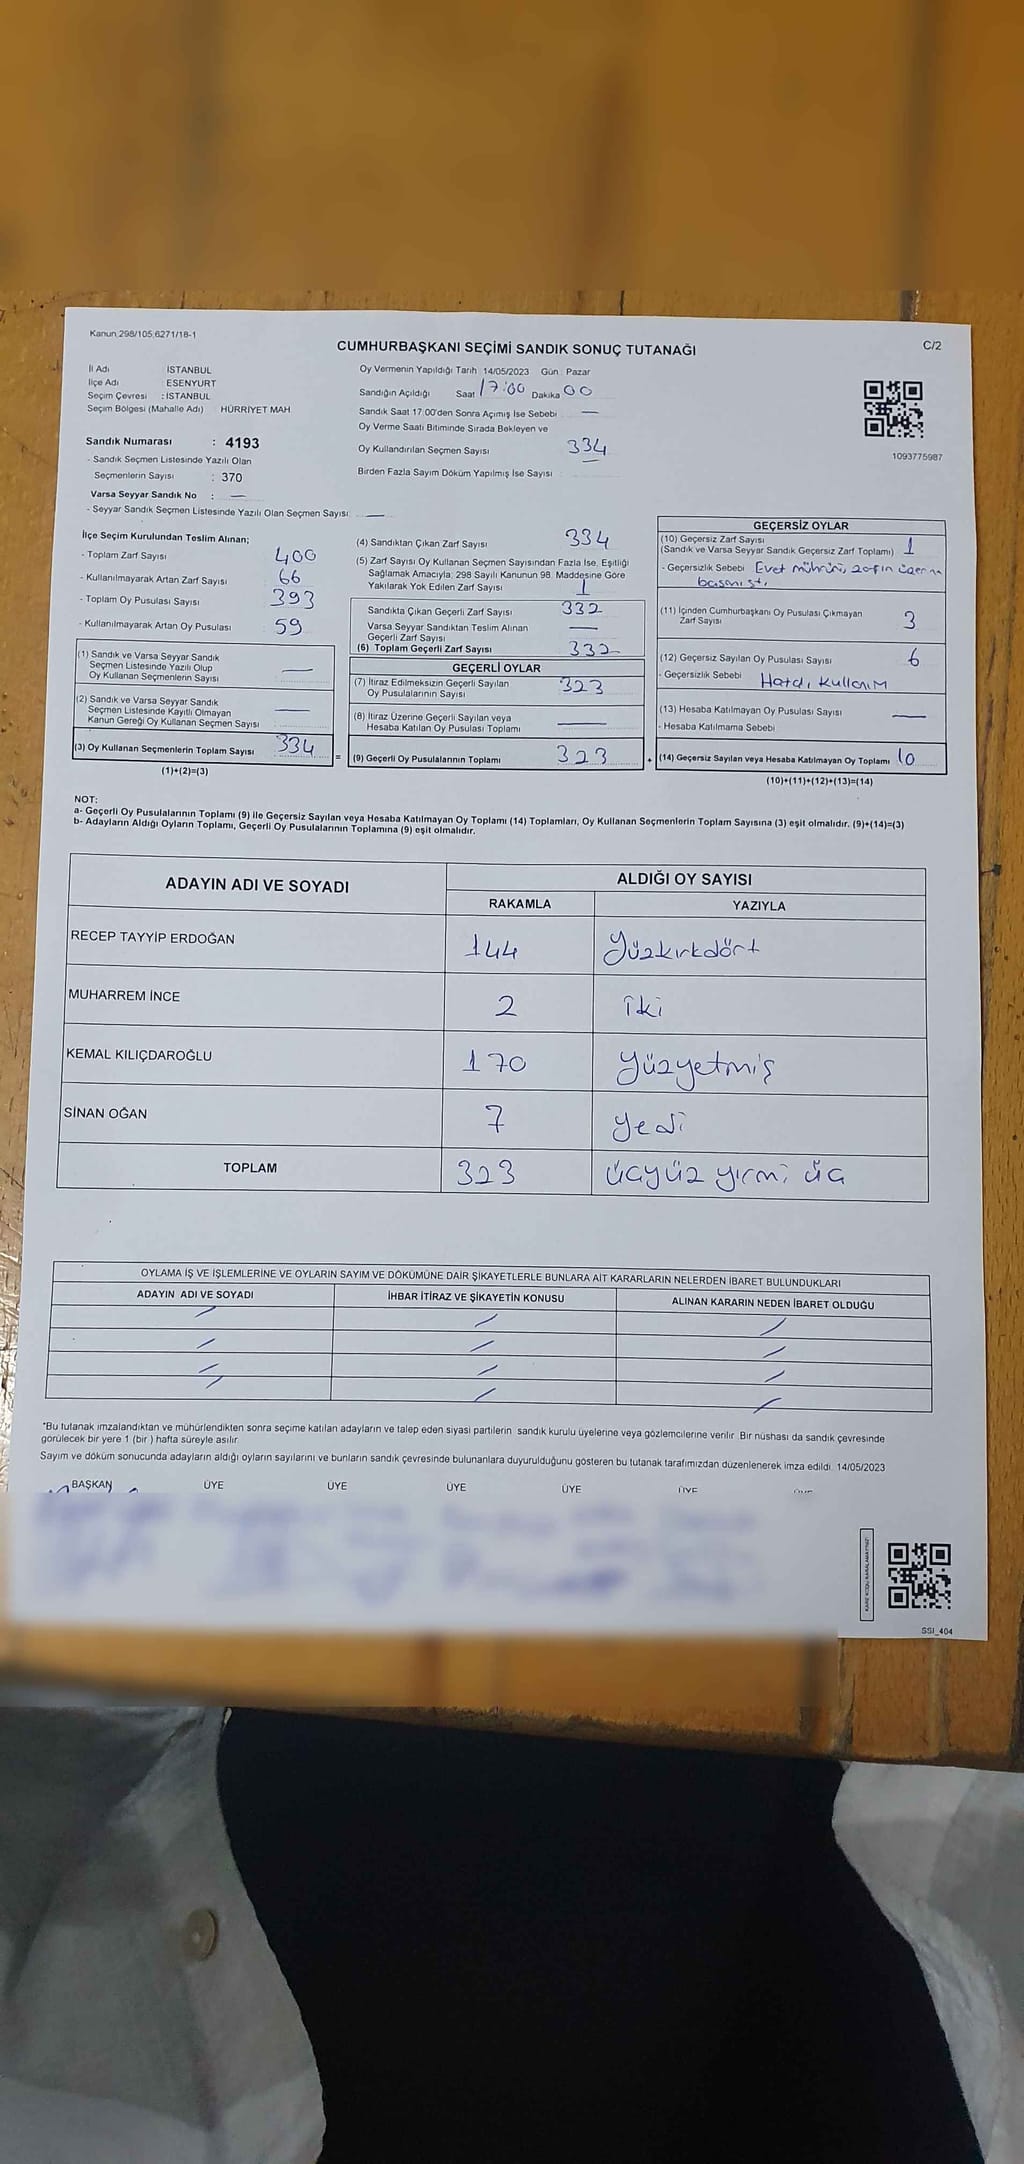 Kanun 298/105,6271/18-1
CUMHURBAŞKANI SEÇİMİ SANDIK SONUÇ TUTANAĞI
C/2
İl Adı İSTANBUL
İlçe Adı ESENYURT
Seçim Çevresi : İSTANBUL
Seçim Bölgesi (Mahalle Adı) HÜRRİYET MAH
Sandık Numarası : 4193
- Sandık Seçmen Listesinde Yazılı Olan
Seçmenlerin Sayısı : 370
Varsa Seyyar Sandık No : —
- Seyyar Sandık Seçmen Listesinde Yazılı Olan Seçmen Sayısı: —
Oy Vermenin Yapıldığı Tarih 14/05/2023 Gün Pazar
Sandığın Açıldığı Saat 17:00 Dakika 00
Sandık Saat 17:00'den Sonra Açımış İse Sebebi —
Oy Verme Saati Bitiminde Sırada Bekleyen ve
Oy Kullandırılan Seçmen Sayısı 334
Birden Fazla Sayım Döküm Yapılmış İse Sayısı
1093775987
İlçe Seçim Kurulundan Teslim Alınan;
- Toplam Zarf Sayısı 400
- Kullanılmayarak Artan Zarf Sayısı 66
- Toplam Oy Pusulası Sayısı 393
- Kullanılmayarak Artan Oy Pusulası 59
(1) Sandık ve Varsa Seyyar Sandık
Seçmen Listesinde Yazılı Olup
Oy Kullanan Seçmenlerin Sayısı —
(2) Sandık ve Varsa Seyyar Sandık
Seçmen Listesinde Kayıtlı Olmayan
Kanun Gereği Oy Kullanan Seçmen Sayısı —
(3) Oy Kullanan Seçmenlerin Toplam Sayısı 334
(1)+(2)=(3)
=
(4) Sandıktan Çıkan Zarf Sayısı 334
(5) Zarf Sayısı Oy Kullanan Seçmen Sayısından Fazla İse, Eşitliği
Sağlamak Amacıyla; 298 Sayılı Kanunun 98. Maddesine Göre
Yakılarak Yok Edilen Zarf Sayısı 1
Sandıkta Çıkan Geçerli Zarf Sayısı 332
Varsa Seyyar Sandıktan Teslim Alınan
Geçerli Zarf Sayısı —
(6) Toplam Geçerli Zarf Sayısı 332
GEÇERLİ OYLAR
(7) İtiraz Edilmeksizin Geçerli Sayılan
Oy Pusulalarının Sayısı 323
(8) İtiraz Üzerine Geçerli Sayılan veya
Hesaba Katılan Oy Pusulası Toplamı —
(9) Geçerli Oy Pusulalarının Toplamı 323
+
GEÇERSİZ OYLAR
(10) Geçersiz Zarf Sayısı
(Sandık ve Varsa Seyyar Sandık Geçersiz Zarf Toplamı) 1
- Geçersizlik Sebebi Evet mührünü zarfın üzerine
basmıştı.
(11) İçinden Cumhurbaşkanı Oy Pusulası Çıkmayan
Zarf Sayısı 3
(12) Geçersiz Sayılan Oy Pusulası Sayısı 6
- Geçersizlik Sebebi Hatalı Kullanım
(13) Hesaba Katılmayan Oy Pusulası Sayısı —
- Hesaba Katılmama Sebebi
(14) Geçersiz Sayılan veya Hesaba Katılmayan Oy Toplamı 10
(10)+(11)+(12)+(13)=(14)
NOT:
a- Geçerli Oy Pusulalarının Toplamı (9) ile Geçersiz Sayılan veya Hesaba Katılmayan Oy Toplamı (14) Toplamları, Oy Kullanan Seçmenlerin Toplam Sayısına (3) eşit olmalıdır. (9)+(14)=(3)
b- Adayların Aldığı Oyların Toplamı, Geçerli Oy Pusulalarının Toplamına (9) eşit olmalıdır.
ADAYIN ADI VE SOYADI
ALDIĞI OY SAYISI
RAKAMLA YAZIYLA
RECEP TAYYİP ERDOĞAN 144 Yüzkırkdört
MUHARREM İNCE 2 İki
KEMAL KILIÇDAROĞLU 170 Yüzyetmiş
SİNAN OĞAN 7 Yedi
TOPLAM 323 üçyüz yirmi üç
OYLAMA İŞ VE İŞLEMLERİNE VE OYLARIN SAYIM VE DÖKÜMÜNE DAİR ŞİKAYETLERLE BUNLARA AİT KARARLARIN NELERDEN İBARET BULUNDUKLARI
ADAYIN ADI VE SOYADI İHBAR İTİRAZ VE ŞİKAYETİN KONUSU ALINAN KARARIN NEDEN İBARET OLDUĞU
*Bu tutanak imzalandıktan ve mühürlendikten sonra seçime katılan adayların ve talep eden siyasi partilerin sandık kurulu üyelerine veya gözlemcilerine verilir. Bir nüshası da sandık çevresinde
görülecek bir yere 1 (bir ) hafta süreyle asılır.
Sayım ve döküm sonucunda adayların aldığı oyların sayılarını ve bunların sandık çevresinde bulunanlara duyurulduğunu gösteren bu tutanak tarafımızdan düzenlenerek imza edildi. 14/05/2023
BAŞKAN ÜYE ÜYE ÜYE ÜYE ÜYE
SSI_404